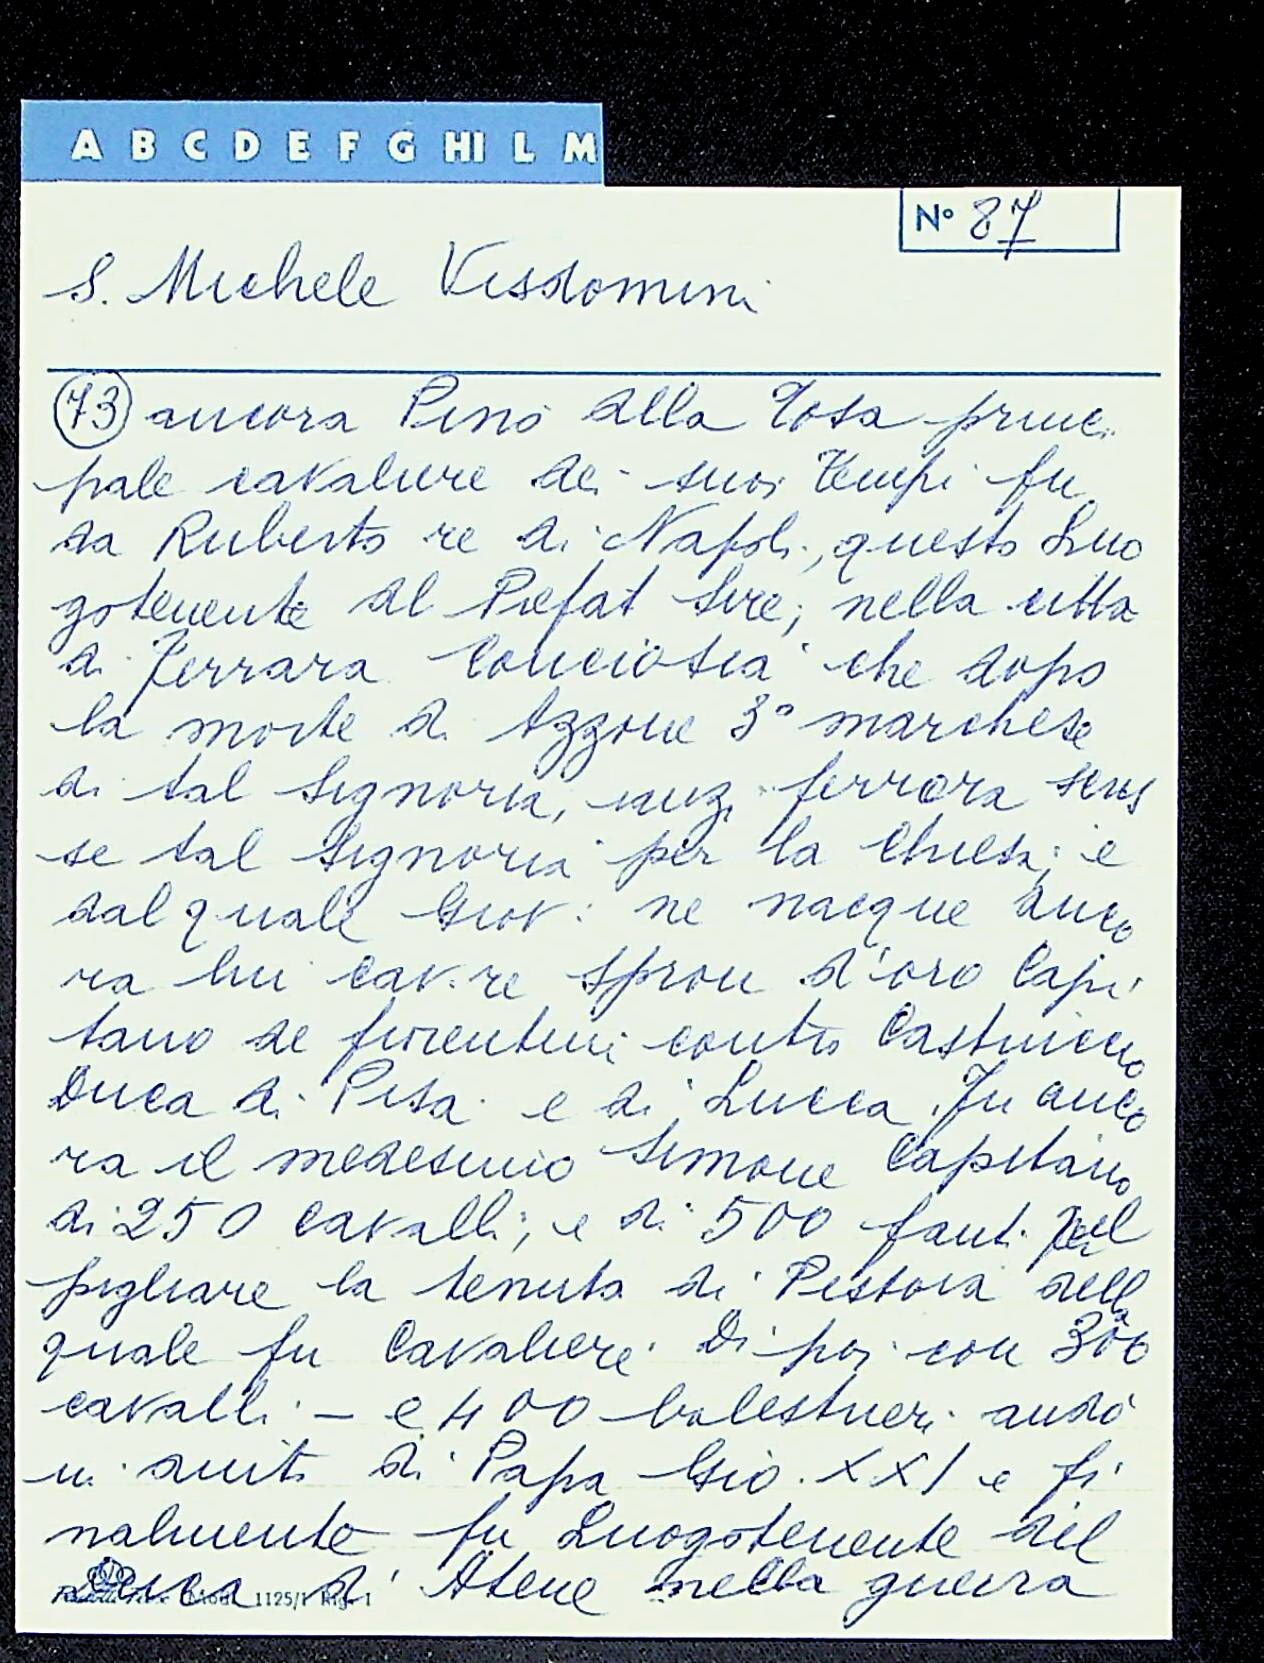 A B C D E F G HI L M
N° 87
S. Michele Visdomini
73 ancora Pino della Tosa princi
pale cavaliere dei suoi tempi fu
da Ruberto re di Napoli, questo Luo
gotenente del Prefat Sire; nella citta
di Ferrara Conciosia che dopo
la morte di Azzone 3° marchese
di tal Signoria, anzi ferrara
se tal Signoria per la Chiesa; e
dal quale Giov: ne nacque anco
ra lui cav.re spron d'oro Capi
tano de fiorentini contro Castruccio
Duca di Pisa e di Lucca. Fu anco
ra il medesimo Simone Capitano
di 250 cavalli; e di 500 fanti pel
pigliare la tenuta di Pistoia della
quale fu Cavaliere. Di poi con 300
cavalli - e 400 balestrieri andò
in aiuto di Papa Gio. XXI e fi
nalmente fu Luogotenente del
Duca d'Atene nella guerra
1125/1 Rig. 1